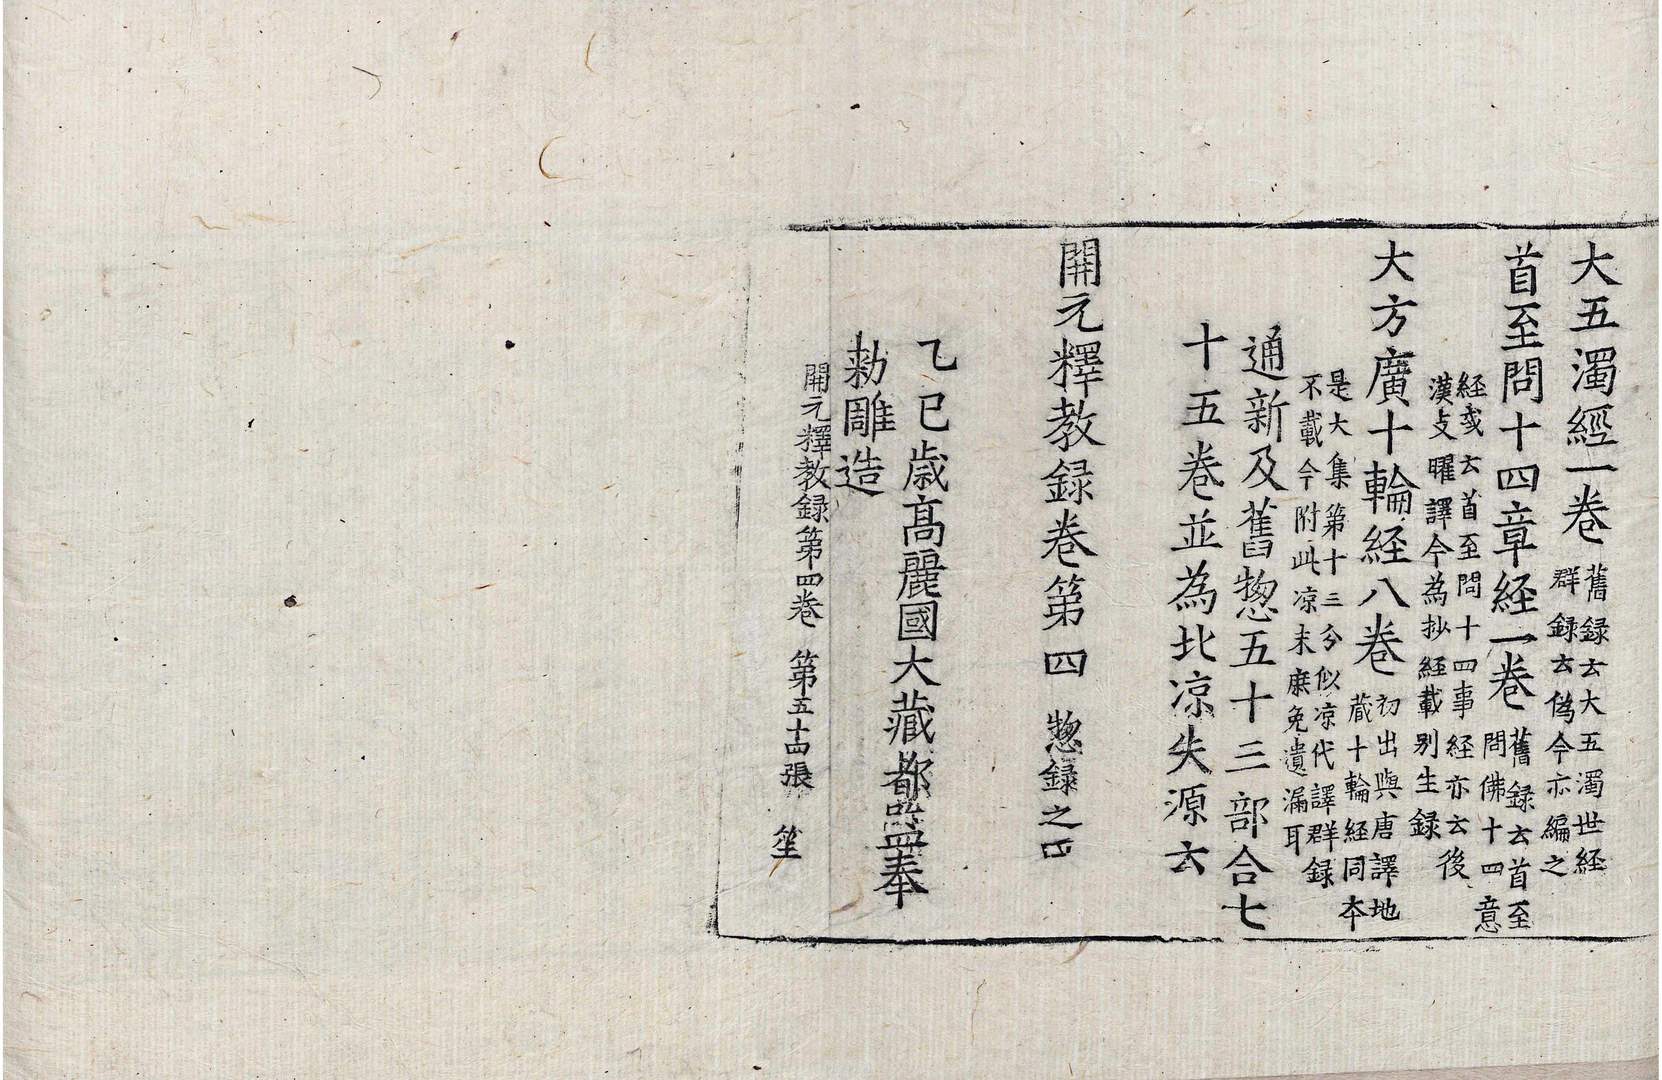 大五濁經一卷 舊録云大五濁世経
群録云偽今亦編之
首至問十四章経一卷 舊録云首至
問佛十四意
経或云首至問十四事経亦云後
漢支曜譯今為抄経載别生録
大方廣十輪経八卷 初出與唐譯地
蔵十輪経同本
是大集第十三分似凉代譯群録
不載今附此凉末庶免遺漏耳
通新及舊惣五十三部合七
十五卷並為北凉失源云
開元釋教録卷第四 惣録之四
乙巳歳髙麗國大藏都監奉
勅雕造
開元釋教録第四卷 第五十四張 笙